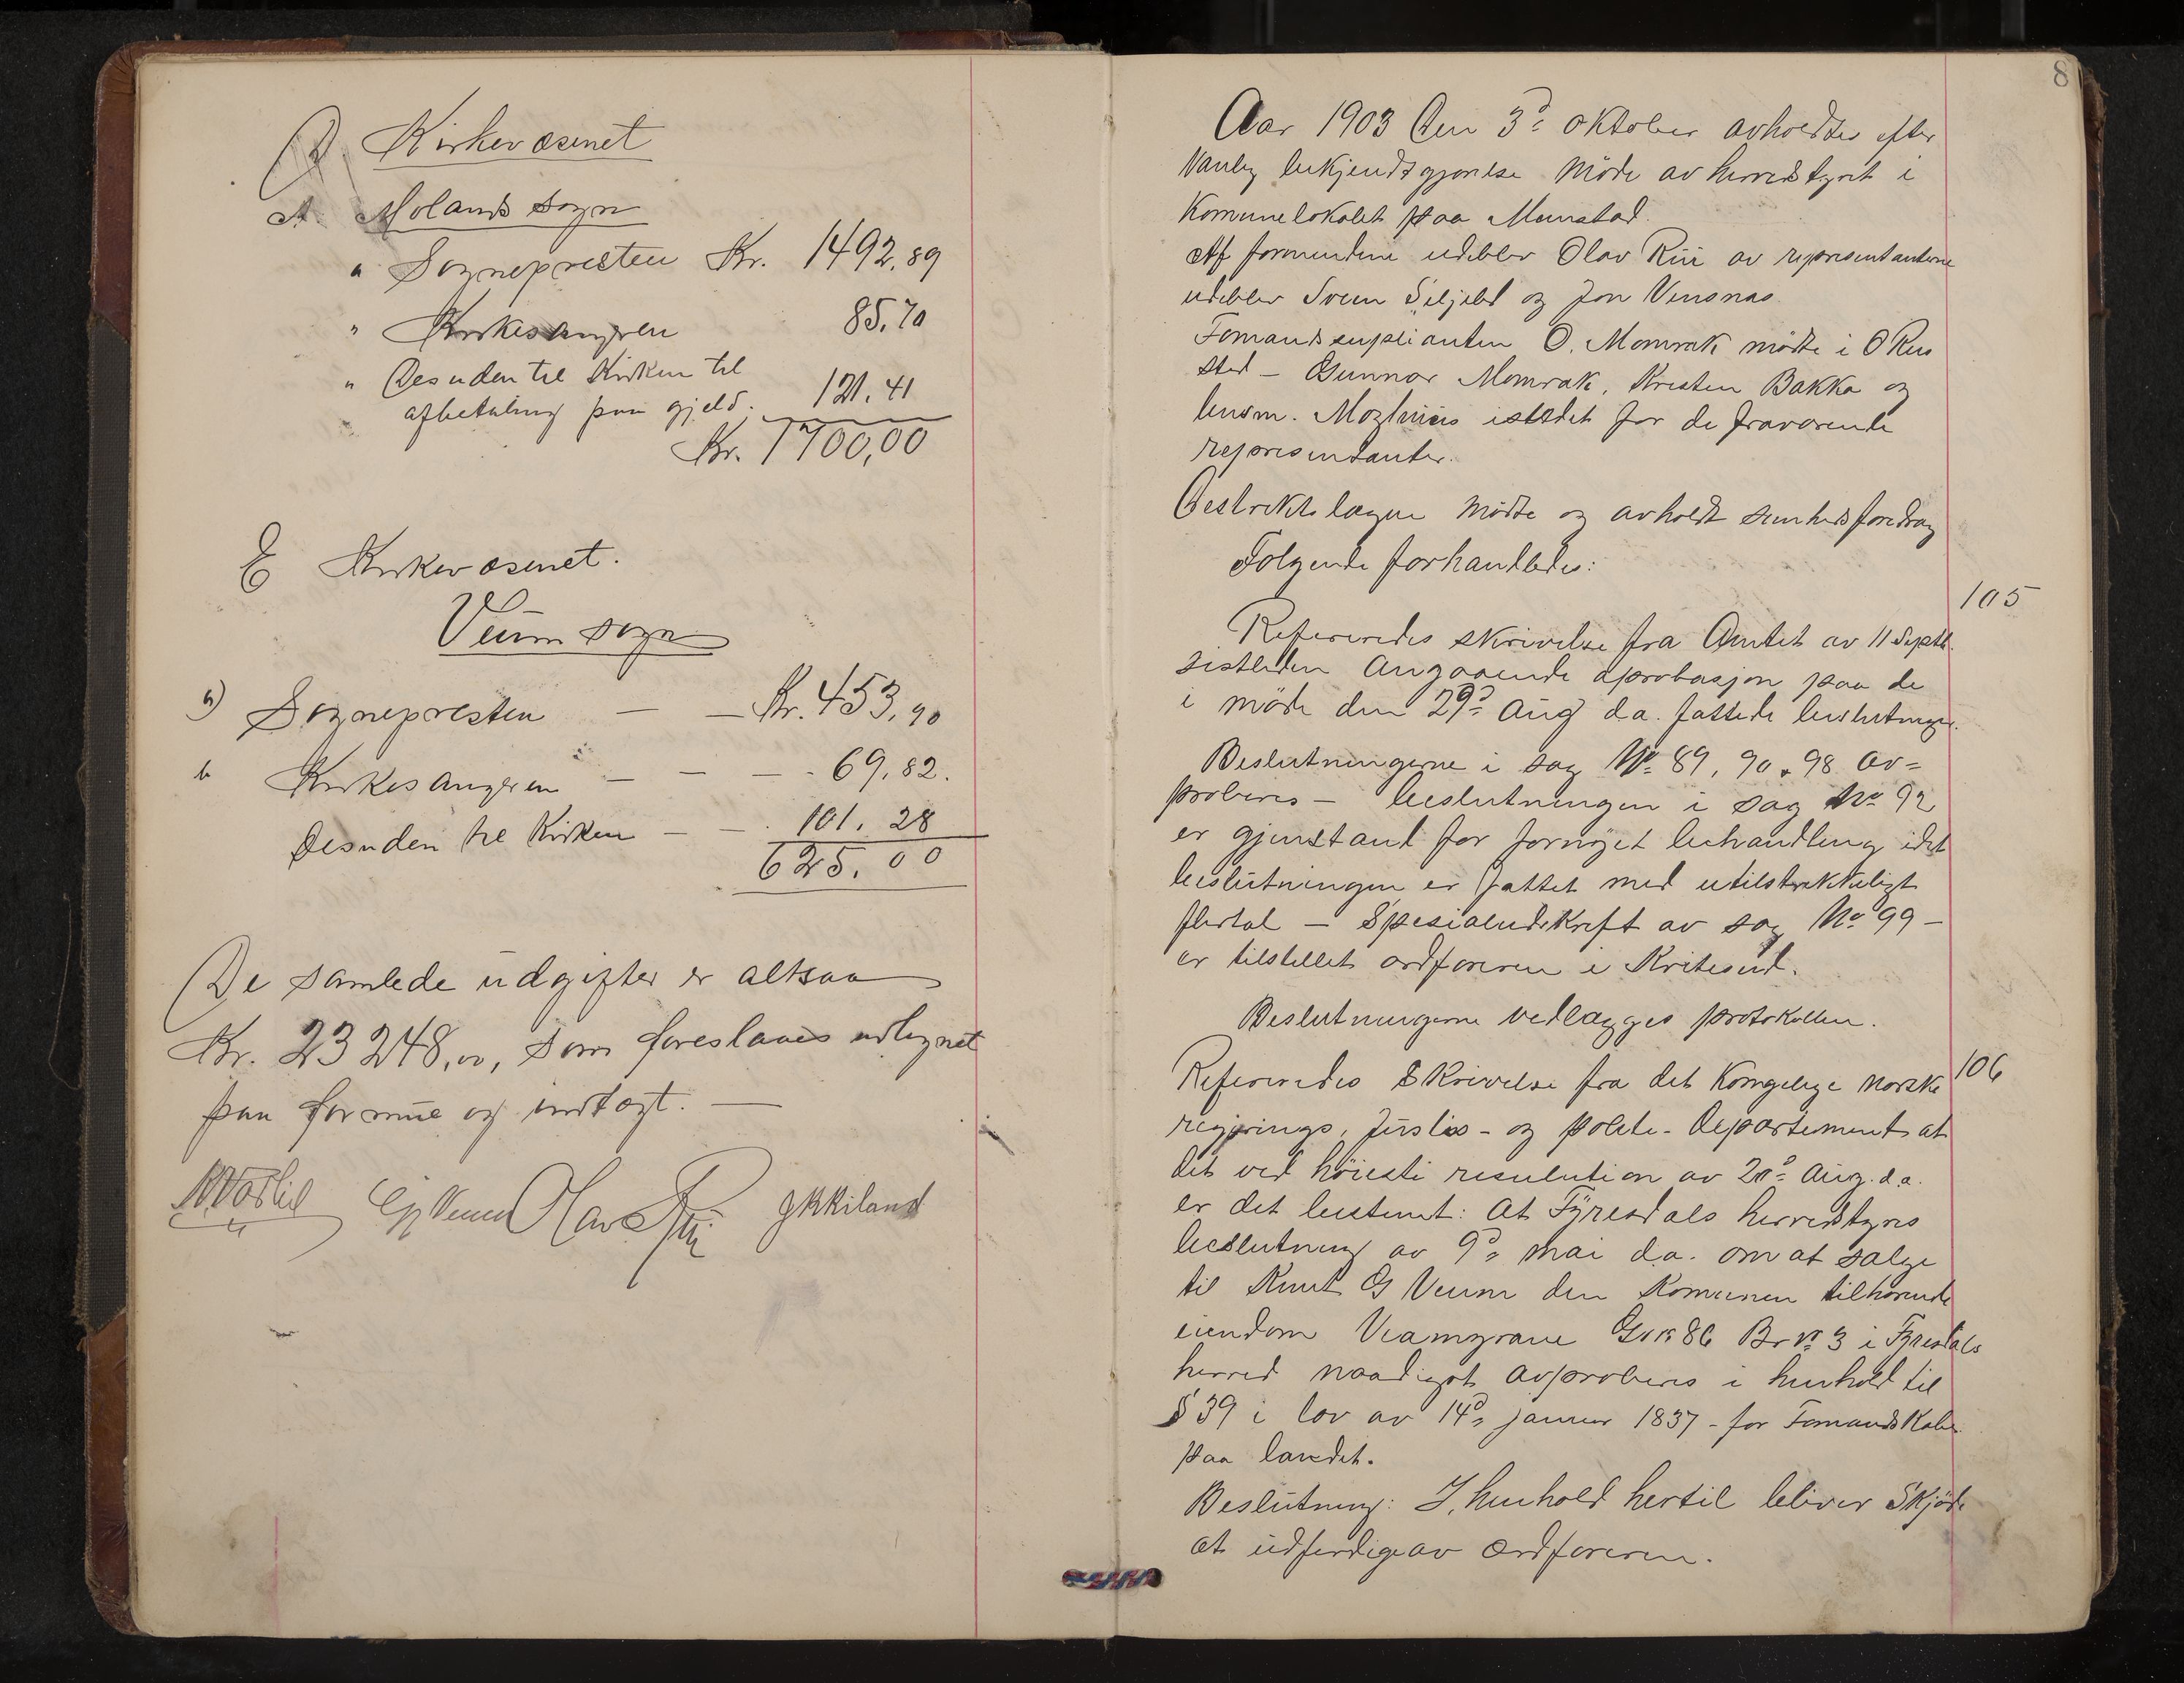 D. Kirkevæsenet
A. Molands Sogn
" Sognepresten Kr. 1492,89
" Kirkesangeren 85,70
" Desuden til Kirken til
afbetaling paa gjeld. 121.41
Kr. 1700,00
E Kirkevæsenet.
Veum sogn
a) Sognepresten — — Kr. 453,90
b Kirkesangeren — — — 69,82.
Desuden til Kirken — — 101.28
625.00
De samlede udgifter er altsaa
Kr. 23248,00, som foreslaaes udlignet
paa formue og indtægt. —
Olav Rii
8
Aar 1903 Den 3d oktober avholdtes efter
vanlig bekjendtgjørelse møde av herredstyret i
Komunelokalet paa Munstad.
Af formendene udeblev Olav Rii av representanterne
udeblev Svein Seljebø og Jon Vensnæs.
Formandssuplianten O. Momrak mødte i O Riis
sted – Gunnar Momrak, Kresten Bakka og
lensm. istedet for de fraværende
representanter.
Destriktslægen mødte og avholdt sunhedsforedrag
Følgende forhandledes:
105
Refereredes skrivelse fra Amtet av 11 Septb.
sistleden angaaende aprobasjon paa de
i møde den 29d Aug d.a. fattede beslutninger.
Beslutningerne i sag No 89, 90 & 98 av=
proberes – beslutningen i sag No 92
er gjenstand for fornyet behandling idet
beslutningen er fattet med utilstrækkeligt
flertal – Spesialudskrift av sag No 99 –
er tilstillet ordføreren i Kviteseid.
Beslutningerne vedlægges protokollen.
106
Refereredes Skrivelse fra det Kongelige norske
regjerings, Justis- og politi-Departement at
det ved høieste resulution av 20d Aug. d.a.
er det bestemt: At Fyresdals herredstyres
beslutning av 9d mai d.a. om at sælge
til Knut G Veum den Komunen tilhørende
eiendom Veamgrave G No 86 Br No 3 i Fyresdals
herred naadigst approberes i henhold til
§ 39 i lov av 14d januar 1837 – for Formandskaber
paa landet.
Beslutning: I henhold hertil bliver Skjøde
at udferdige av ordføreren.